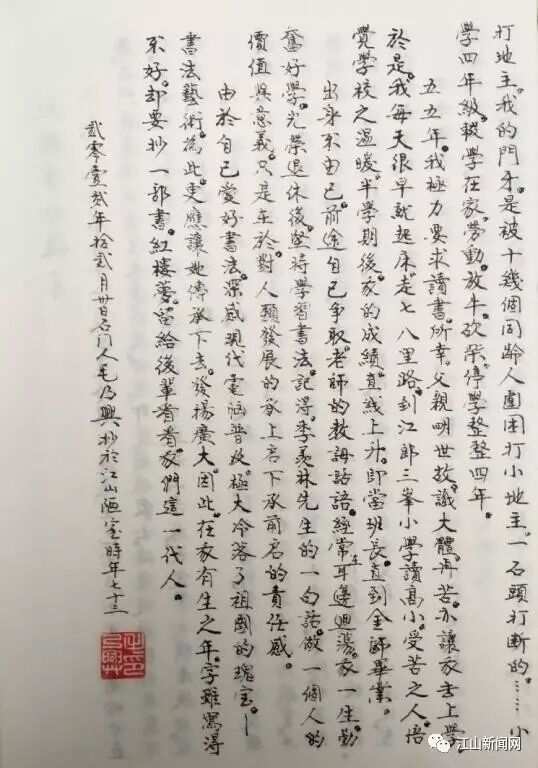 打地主。我的門牙。是被十幾個同齡人圍困打小地主。一石頭打斷的……小
學四年級。輟學在家。勞動。放牛。砍柴。停學整整四年。
五五年。我極力要求讀書。所幸。父親明世故。識大體。再苦。亦讓我去上學。
於是。我每天很早就起床。走七八里路。到江郎三峯小學讀高小。受苦之人。倍
覺學校之温暖。半學期後。我的成績直线上升。即當班長。直到金師畢業。
出身不由己。前途自己争取。老師的教誨話語。經常在耳邊迴蕩。我一生勤
奮好學。光榮退休後。堅持學習書法。記得。季羡林先生的一句話。做一個人的
價值與意義。只是在於對人類發展的承上启下承前启的責任感。
由於自己愛好書法。深感現代電腦普及。極大冷落了祖國的瑰宝—
書法藝術。為此。更應讓她傳承下去。發揚廣大。因此。在我有生之年。字雖寫得
不好。却要抄一部書。紅樓夢。留給後輩看看我們這一代人。
贰零壹贰年拾贰月卅日石门人毛乃興抄於江山陋室時年七十三
江山新闻网